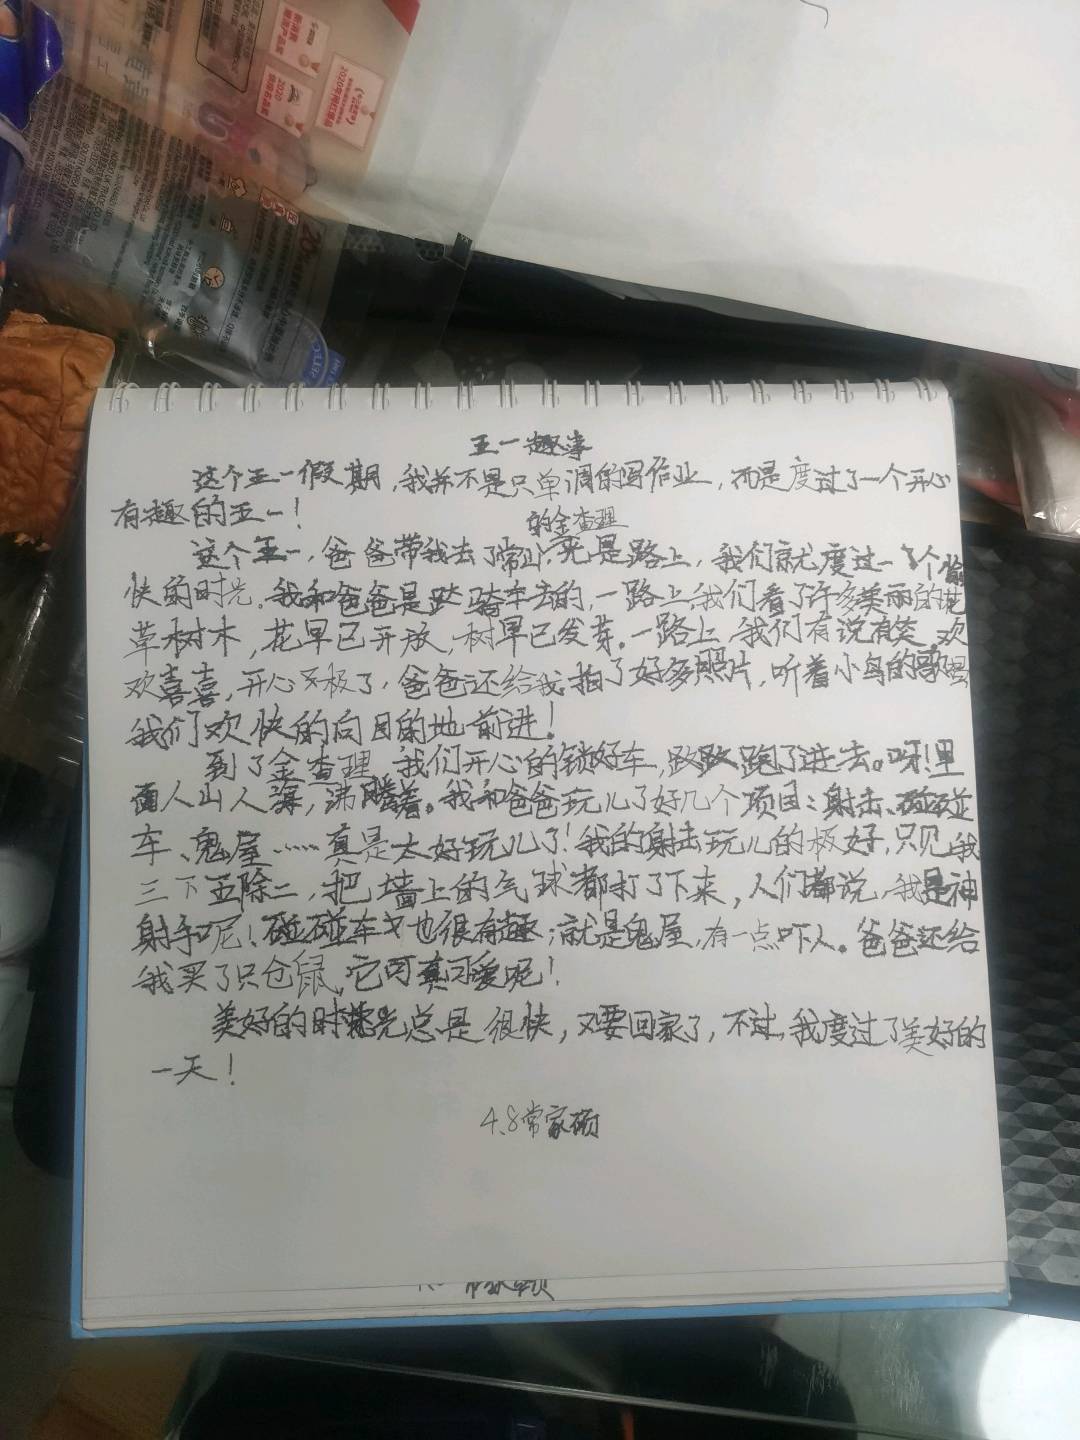 五一趣事
这个五一假期，我并不是只单调的写作业，而是度过了一个开心
有趣的五一！
的金查理
这个五一，爸爸带我去了常山，光是路上，我们就度过一个愉
快的时光。我和爸爸是骑车去的，一路上，我们看了许多美丽的花
草树木，花早已开放，树早已发芽。一路上，我们有说有笑，欢
欢喜喜，开心极了，爸爸还给我拍了好多照片，听着小鸟的歌唱
我们欢快的向目的地前进！
到了金查理，我们开心的锁好车，跑了进去。呀！里
面人山人海，沸腾着。我和爸爸玩儿了好几个项目：射击、碰碰
车、鬼屋……真是太好玩儿了！我的射击玩儿的极好，只见我
三下五除二，把墙上的气球都打了下来，人们都说，我是神
射手呢！碰碰车也很有趣；就是鬼屋，有一点吓人。爸爸还给
我买了只仓鼠，它可真可爱呢！
美好的时光总是很快，又要回家了，不过，我度过了美好的
一天！
4.8常家硕
2020